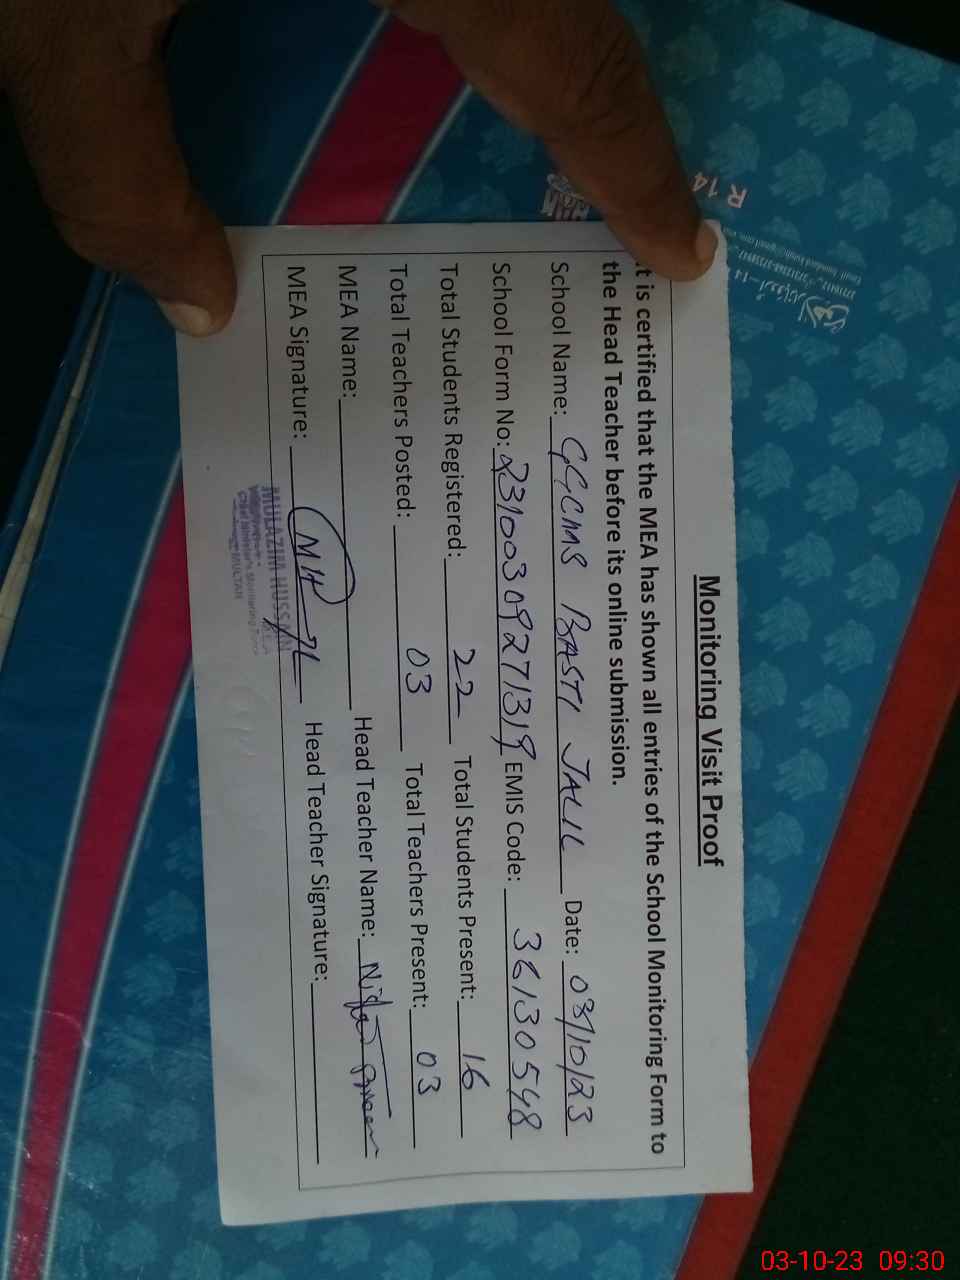 Monitoring Visit Proof
It is certified that the MEA has shown all entries of the School Monitoring Form to
the Head Teacher before its online submission.
School Name: GGCMS BASTI JALIL Date: 03/10/23
School Form No: 23100309271319 EMIS Code: 36130548
Total Students Registered: 22 Total Students Present: 16
Total Teachers Posted: 03 Total Teachers Present: 03
MEA Name: Head Teacher Name:
MEA Signature: MH Head Teacher Signature:
MULAZIM HUSSAIN
MEA
Chief Minister's Monitoring Force
MULTAN
R 14
03-10-23 09:30